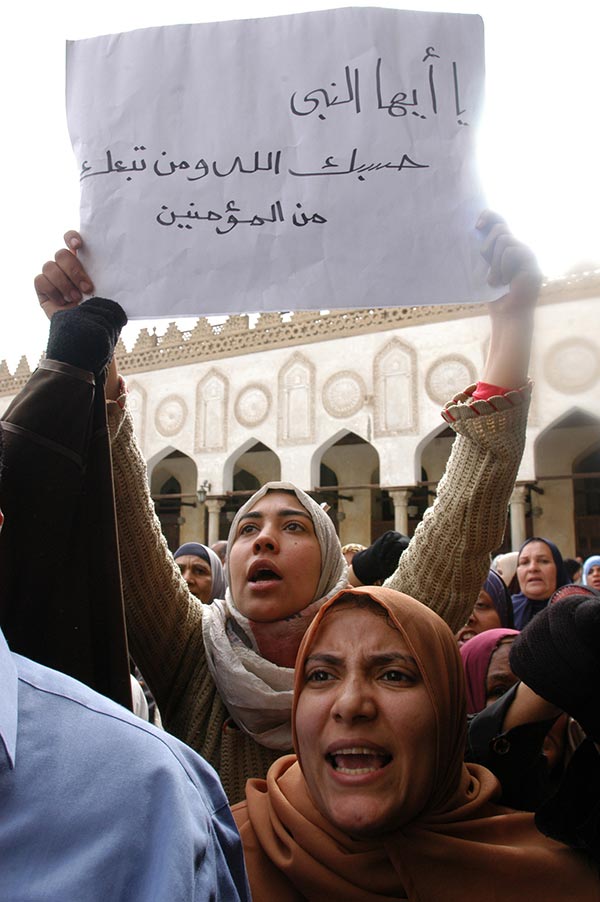 يا أيها النبي
حسبك الله ومن تبعك
من المؤمنين